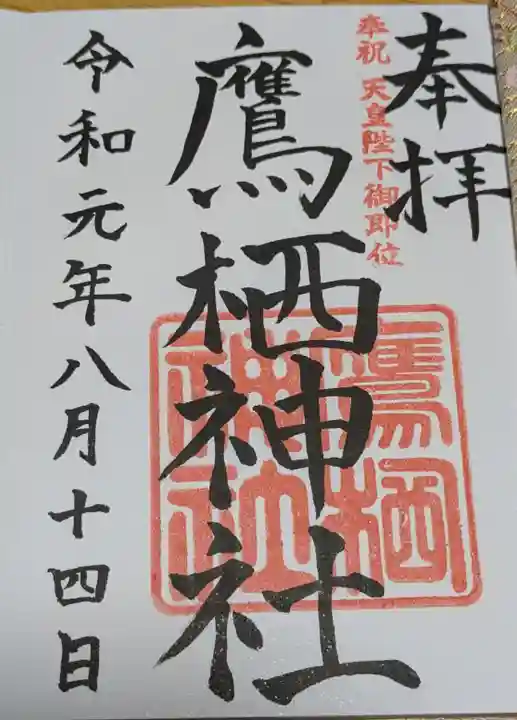 奉拝
奉祝 天皇陛下御即位
鷹栖神社
鷹栖
神社
令和元年八月十四日